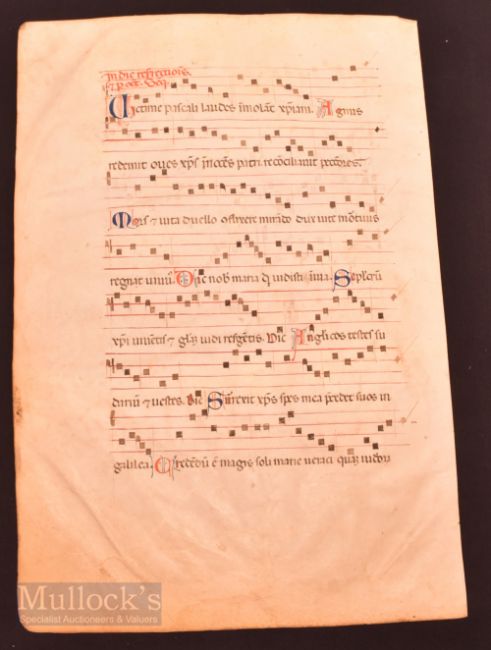 In die resrectiois
Victime pascali laudes imolāt xp̄iani. Agnus
redemit oues xp̄s īnocēs patri recōciliauit pctōres.
Mors ⁊ uita duello mirādo dux uite mortuus
regnat uiuus. Dic nob maria qͥd uidisti ī uia. Sepulcrū
xp̄i uiuētis ⁊ gl̄iā uidi resgētis. Dic Anglicos testes su
dariū ⁊ uestes. Dic Surrexit xp̄s spes mea p̄cedet suos in
galilea. Credēdū ē magis soli marie ueraci quaȝ iudeoꝝ
Mullock's
Specialist Auctioneers & Valuers